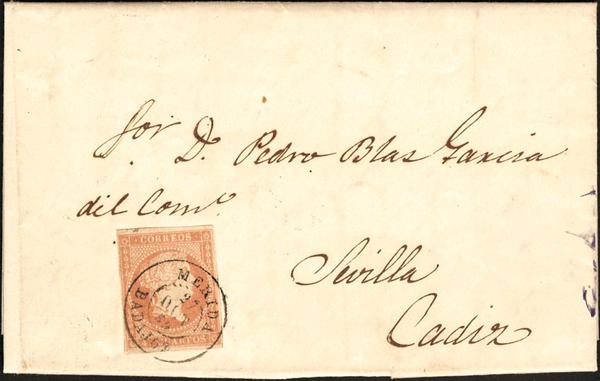 Sor. D. Pedro Blas Garcia
del Comº.
Sevilla
Cadiz
CORREOS
MERIDA
27
OCT
BADAJOZ